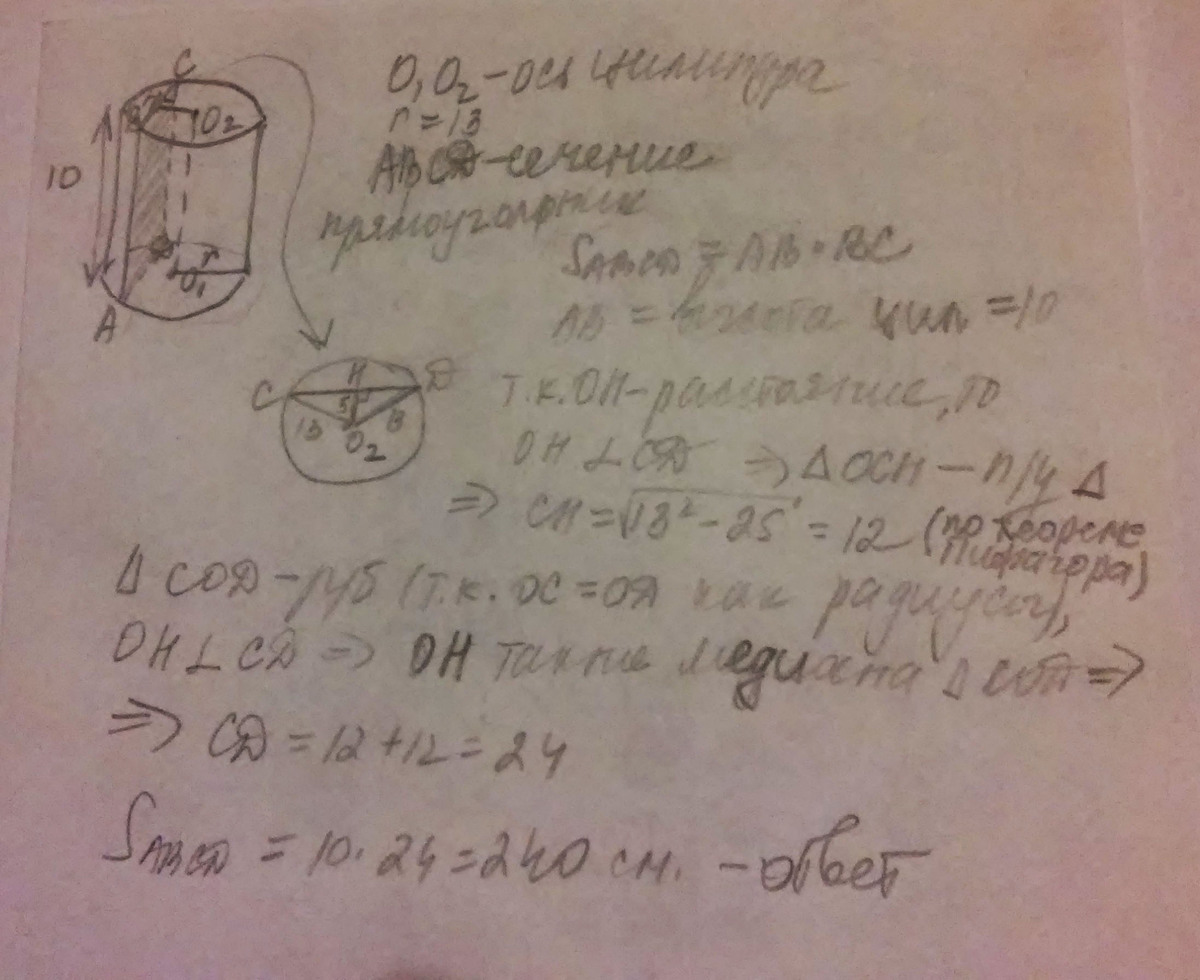 C
O₂
10
r
O₁
A
O₁O₂ – ось цилиндра
r = 13
ABCD – сечение
прямоугольник
S_ABCD = AB · BC
AB = высота цил = 10
C H D
5
13 O₂ 13
т.к. OH – расстояние, то
OH ⊥ CD ⇒ Δ OCH – п/у Δ
⇒ CH = √13² – 25 = 12 (по теореме
Пифагора)
Δ COD – р/б (т.к. OC = OD как радиусы),
OH ⊥ CD ⇒ OH также медиана Δ COD ⇒
⇒ CD = 12 + 12 = 24
S_ABCD = 10 · 24 = 240 см. – ответ